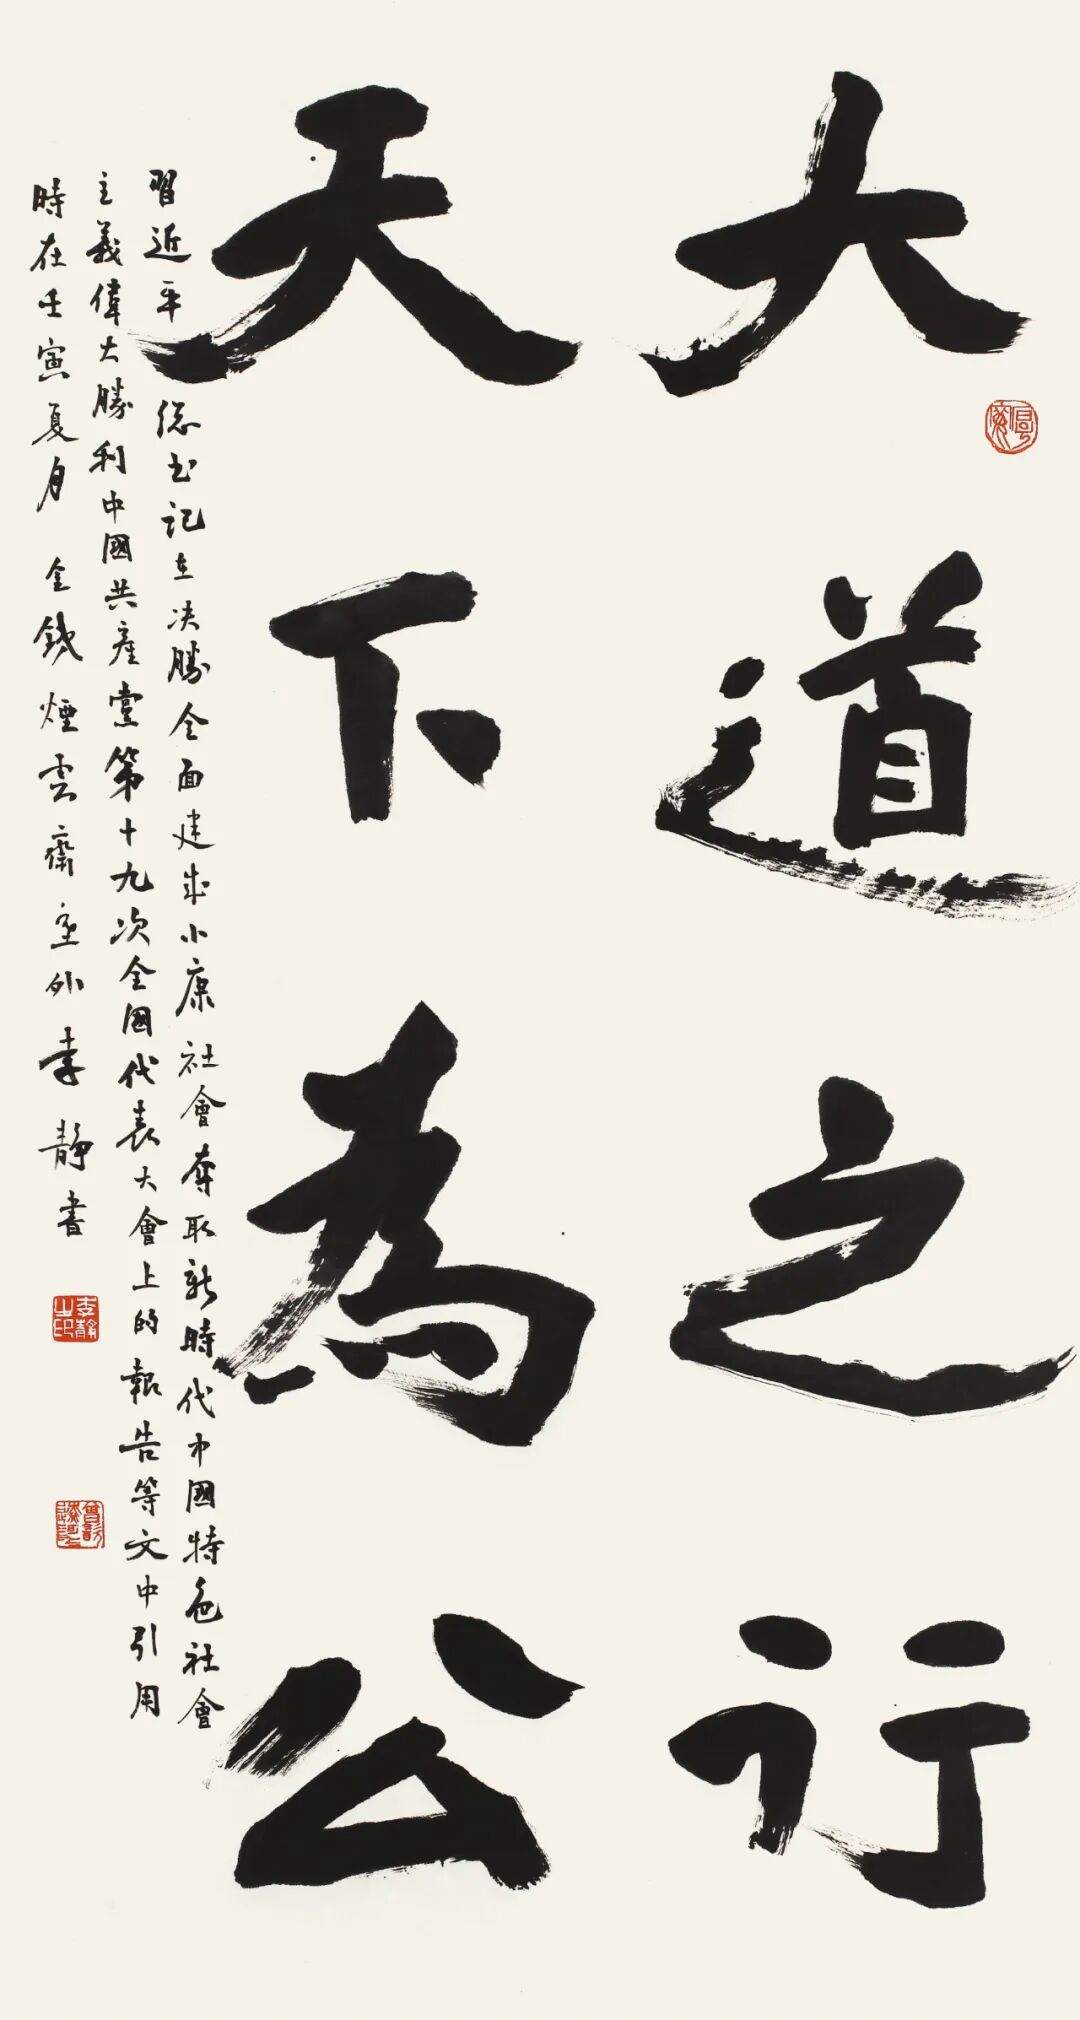 大道之行
天下為公
習近平總书記在决勝全面建成小康社會奪取新時代中國特色社會
主義偉大勝利中國共產黨第十九次全國代表大會上的報告等文中引用
時在壬寅夏月 金錢煙雲齋 李靜書
李靜之印